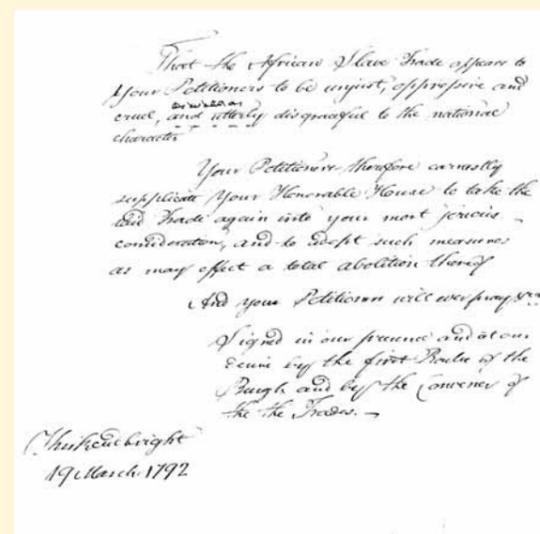 That the African Slave Trade appears to
Your Petitioners to be unjust, oppressive and
cruel, and utterly disgraceful to the national
character
Your Petitioners therefore earnestly
supplicate Your Honorable House to take the
said Trade again into your most serious
consideration, and to adopt such measures
as may effect a total abolition thereof
And your Petitioners will ever pray
Signed in our presence and at our
desire by the first Bailie of the
Burgh and by the Convener of
the the Trades.
Kirkcudbright
19 March 1792